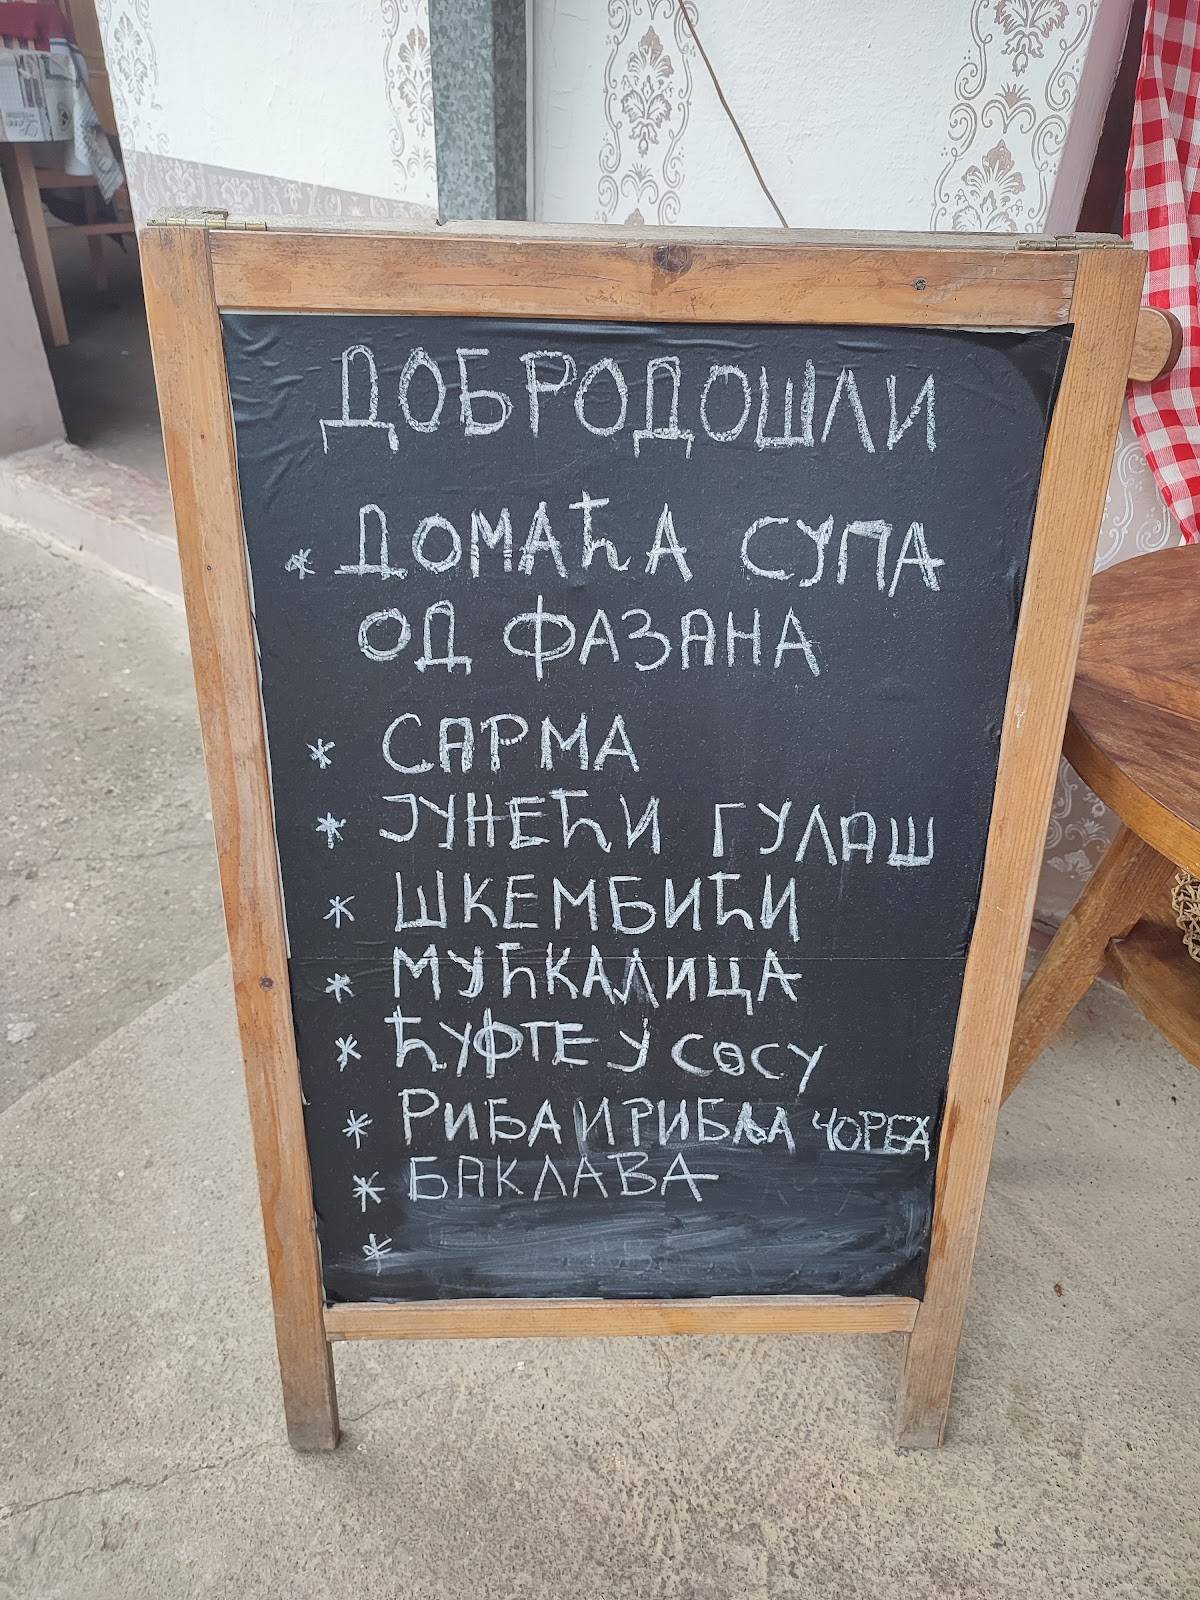 ДОБРОДОШЛИ
* ДОМАЋА СУПА
ОД ФАЗАНА
* САРМА
* ЈУНЕЋИ ГУЛАШ
* ШКЕМБИЋИ
* МУЋКАЛИЦА
* ЋУФТЕ У СОСУ
* РИБА И РИБЉА ЧОРБА
* БАКЛАВА
*